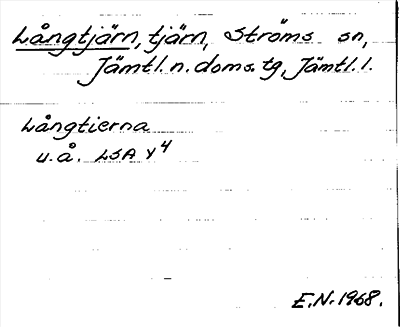 Långtjärn, tjärn, Ströms sn,
Jämtl. n. doms. tg, Jämtl. l.
Långtierna
u. å. LSA Y4
E.N. 1968.